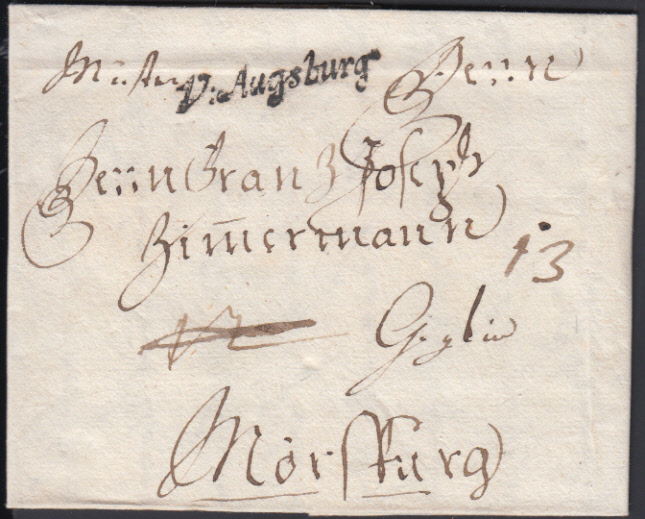 V: Augsburg Herrn
Herrn Franz Joseph
Zim̄ermann
13
Mörsburg